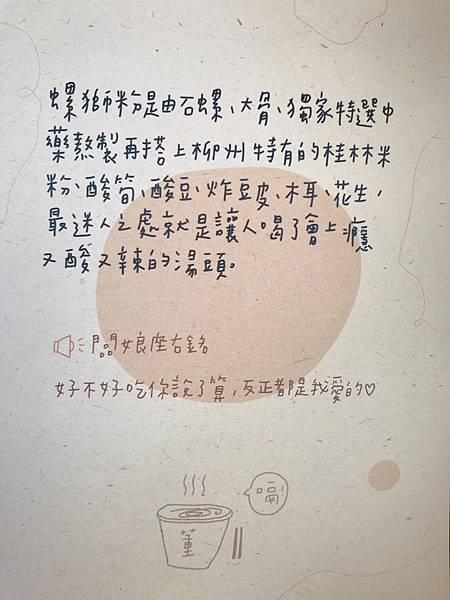 螺獅粉是由石螺、大骨、獨家特選中
藥熬製再搭上柳州特有的桂林米
粉、酸筍、酸豆、炸豆皮、木耳、花生，
最迷人之處就是讓人喝了會上癮
又酸又辣的湯頭。
闆娘座右銘
好不好吃你說了算，反正都是我愛的♡
嗝!
董